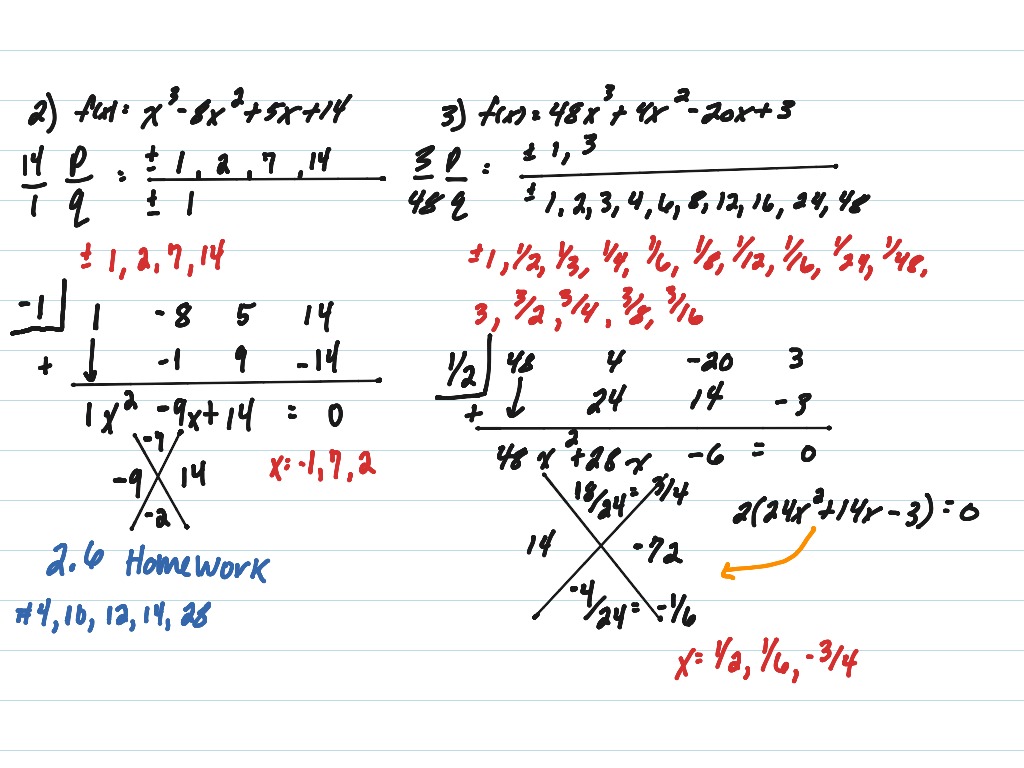 2) f(x) = x³ - 8x² + 5x + 14
14/1 p/q = ± 1, 2, 7, 14 / ± 1
± 1, 2, 7, 14
-1 | 1 -8 5 14
+ ↓ -1 9 -14
1x² - 9x + 14 = 0
-7
-9 14
-2
x = -1, 7, 2
2.6 Homework
#4, 10, 12, 14, 28
3) f(x) = 48x³ + 4x² - 20x + 3
3/48 p/q = ± 1, 3 / ± 1, 2, 3, 4, 6, 8, 12, 16, 24, 48
± 1, 1/2, 1/3, 1/4, 1/6, 1/8, 1/12, 1/16, 1/24, 1/48,
3, 3/2, 3/4, 3/8, 3/16
1/2 | 48 4 -20 3
+ ↓ 24 14 -3
48x² + 28x - 6 = 0
18/24 = 3/4
2(24x² + 14x - 3) = 0
14 -72
-4/24 = -1/6
x = 1/2, 1/6, -3/4